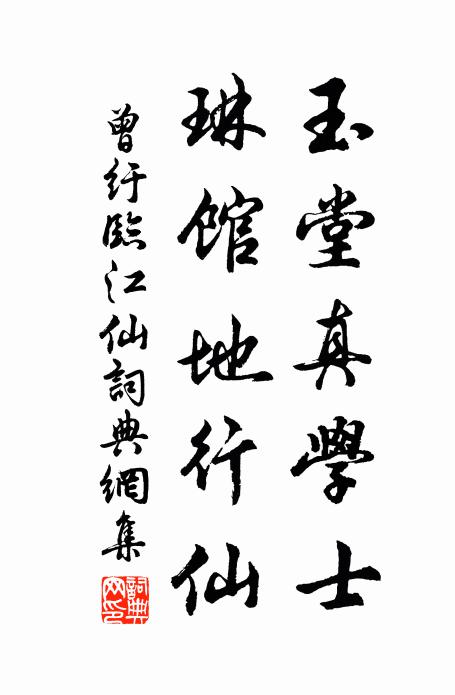 玉堂真學士
琳館地行仙
曾紆臨江仙詞典網集
詞典網印